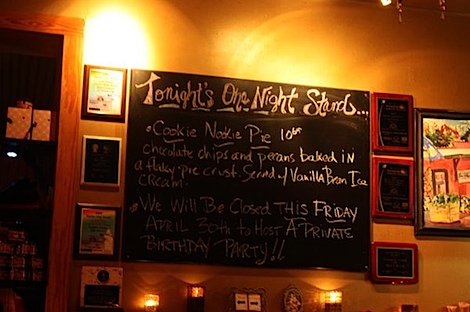 Tonight's One Night Stands...
• Cookie Nookie Pie 10
chocolate chips and pecans baked in
a flaky pie crust. Served w/ Vanilla Bean Ice
Cream.
• We Will Be Closed This Friday
April 30th to Host A Private
Birthday Party!!